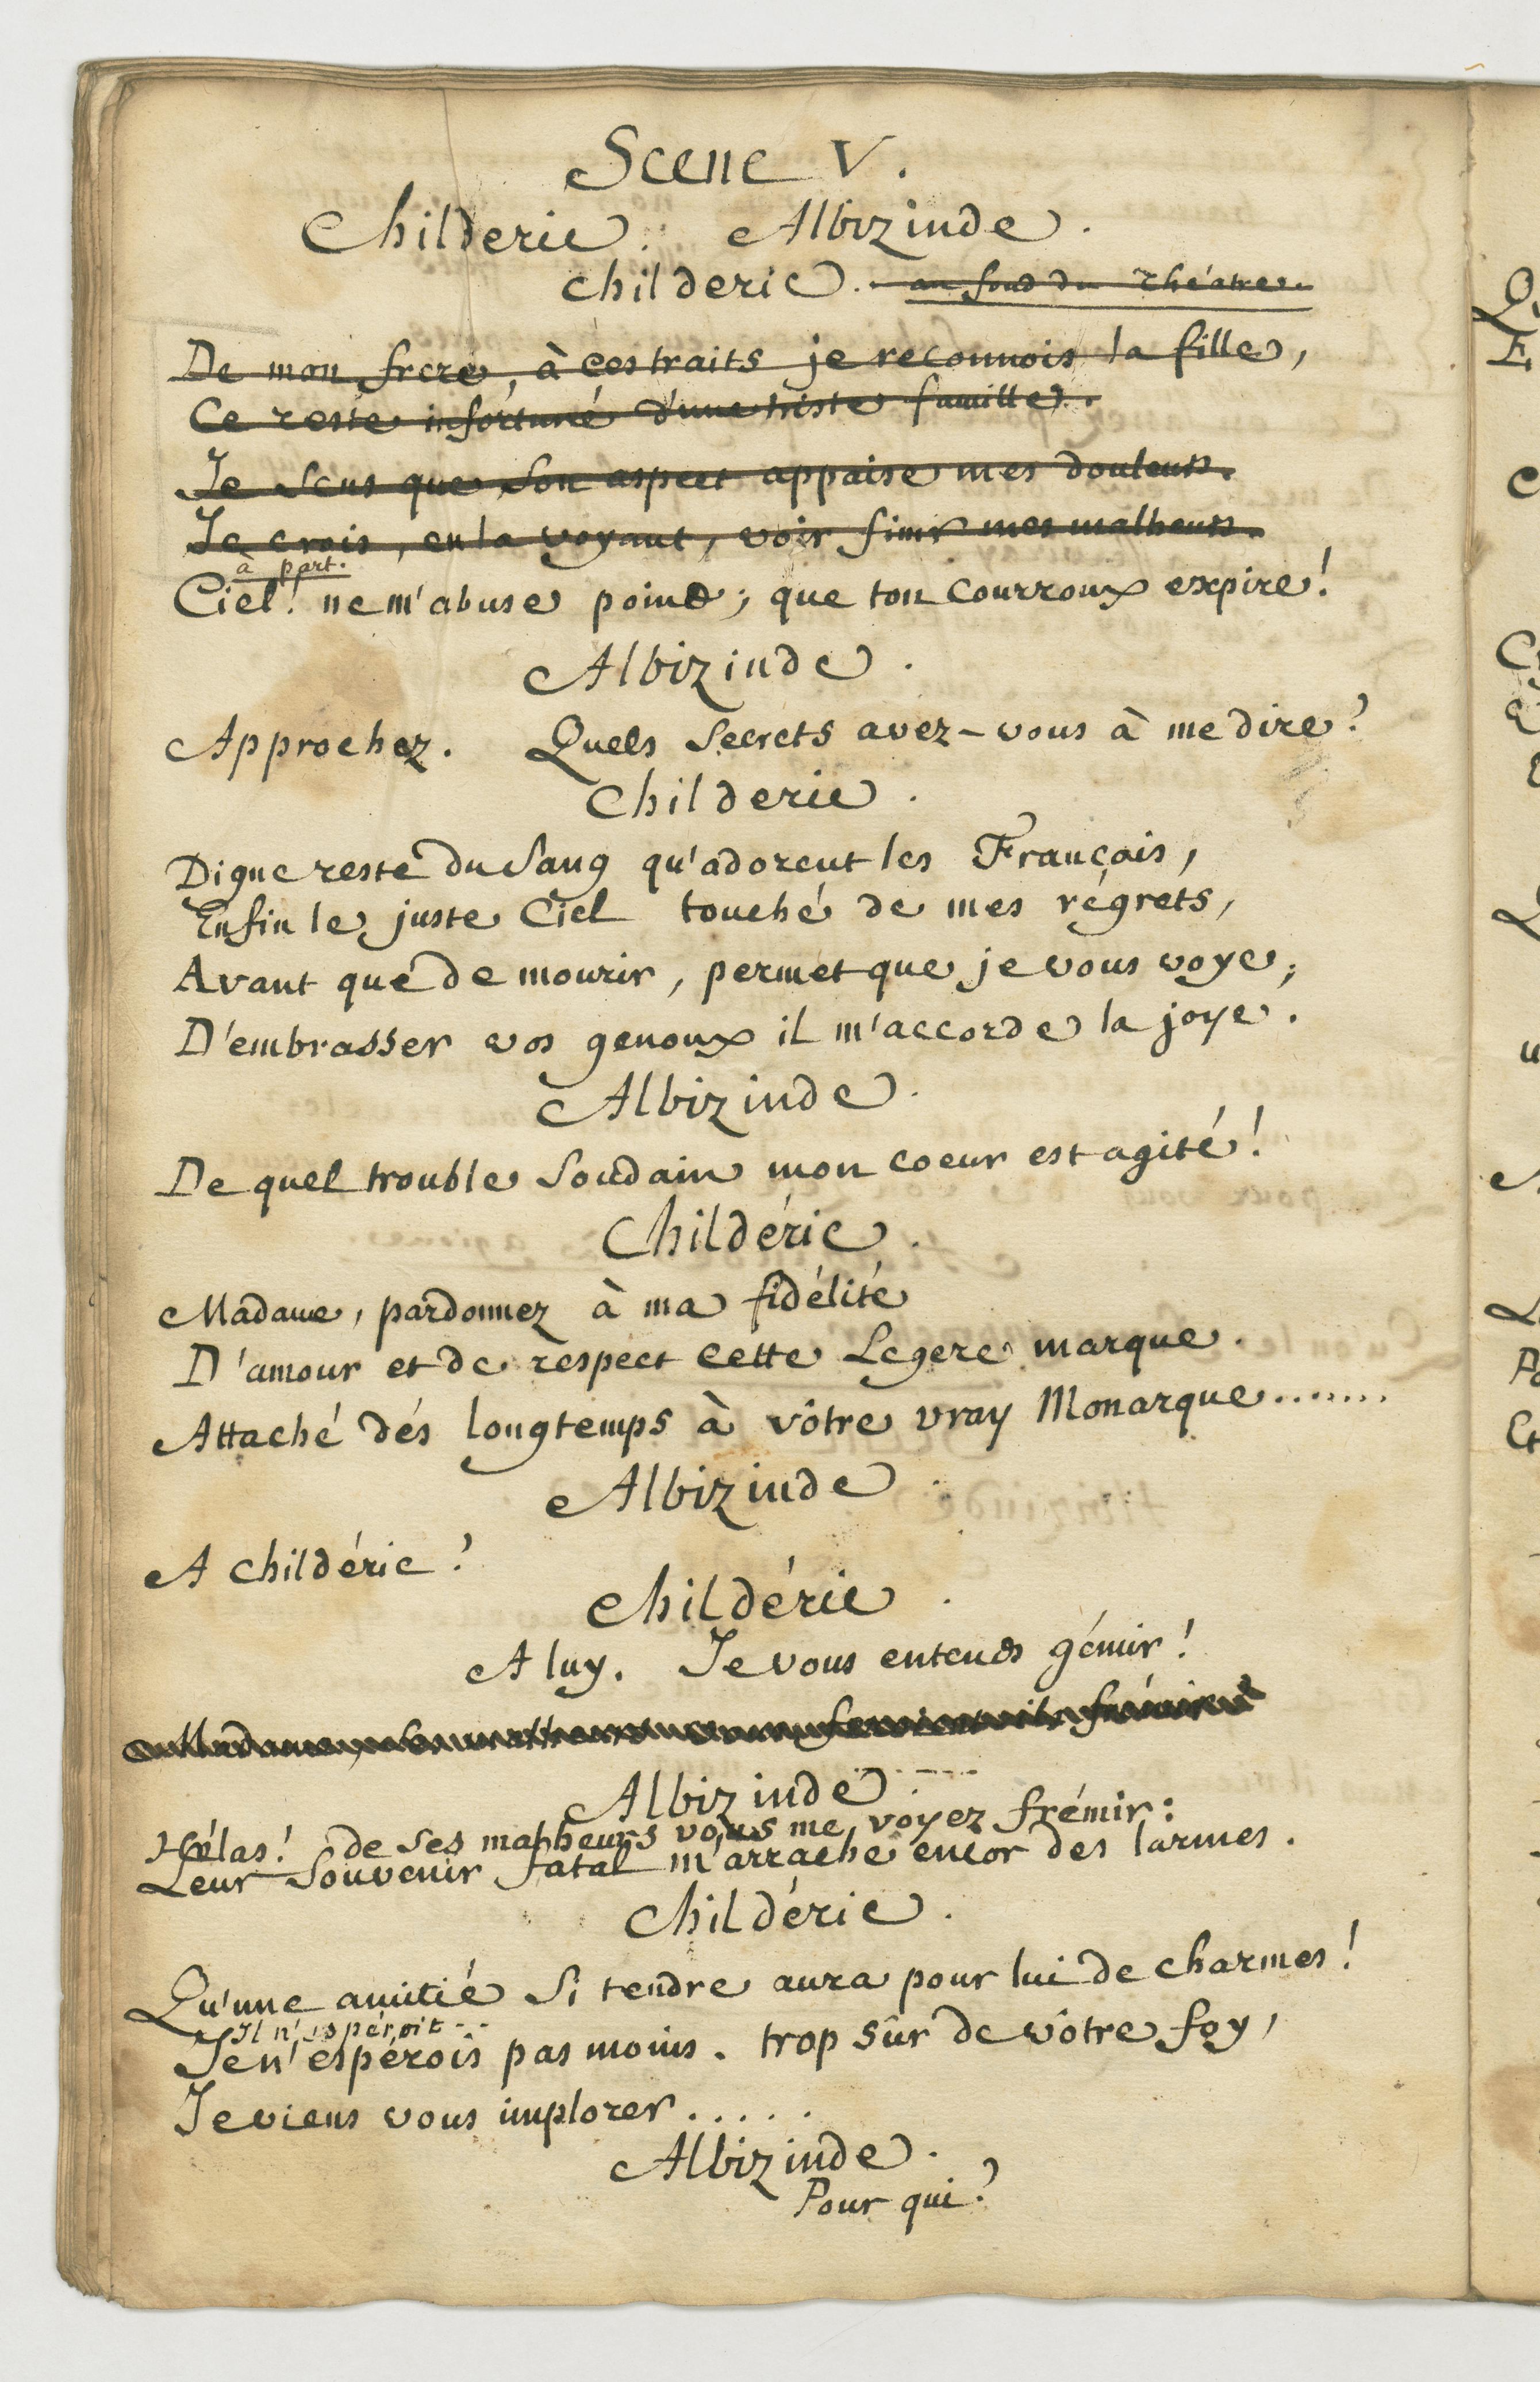 Scene V.
Childeric. Albizinde.
Childeric. au fond du théatre.
De mon frere, à ces traits je reconnois la fille,
Ce reste infortuné d'une triste famille.
Je sens que son aspect appaise mes douleurs.
Je crois, en la voyant, voir finir mes malheurs.
à part.
Ciel! ne m'abuse point; que ton courroux expire!
Albizinde.
Approchez. Quels secrets avez-vous à me dire?
Childeric.
Digne reste du sang qu'adorent les François,
Enfin le juste Ciel touché de mes régrets,
Avant que de mourir, permet que je vous voye;
D'embrasser vos genoux il m'accorde la joye.
Albizinde.
De quel trouble soudain mon coeur est agité!
Childéric.
Madame, pardonnez à ma fidélité
D'amour et de respect cette legere marque.
Attaché dés longtemps à vôtre vray Monarque........
Albizinde.
A Childéric?
Childéric.
A luy. Je vous entends gémir!
Madame,
Albizinde.
Hélas! de ses malheurs vous me voyez frémir:
Leur souvenir fatal m'arrache encor des larmes.
Childéric.
Qu'une amitié si tendre aura pour lui de charmes!
Il n'espéroit...
Je n'espérois pas moins. trop sûr de vôtre foy,
Je viens vous implorer.....
Albizinde.
Pour qui?